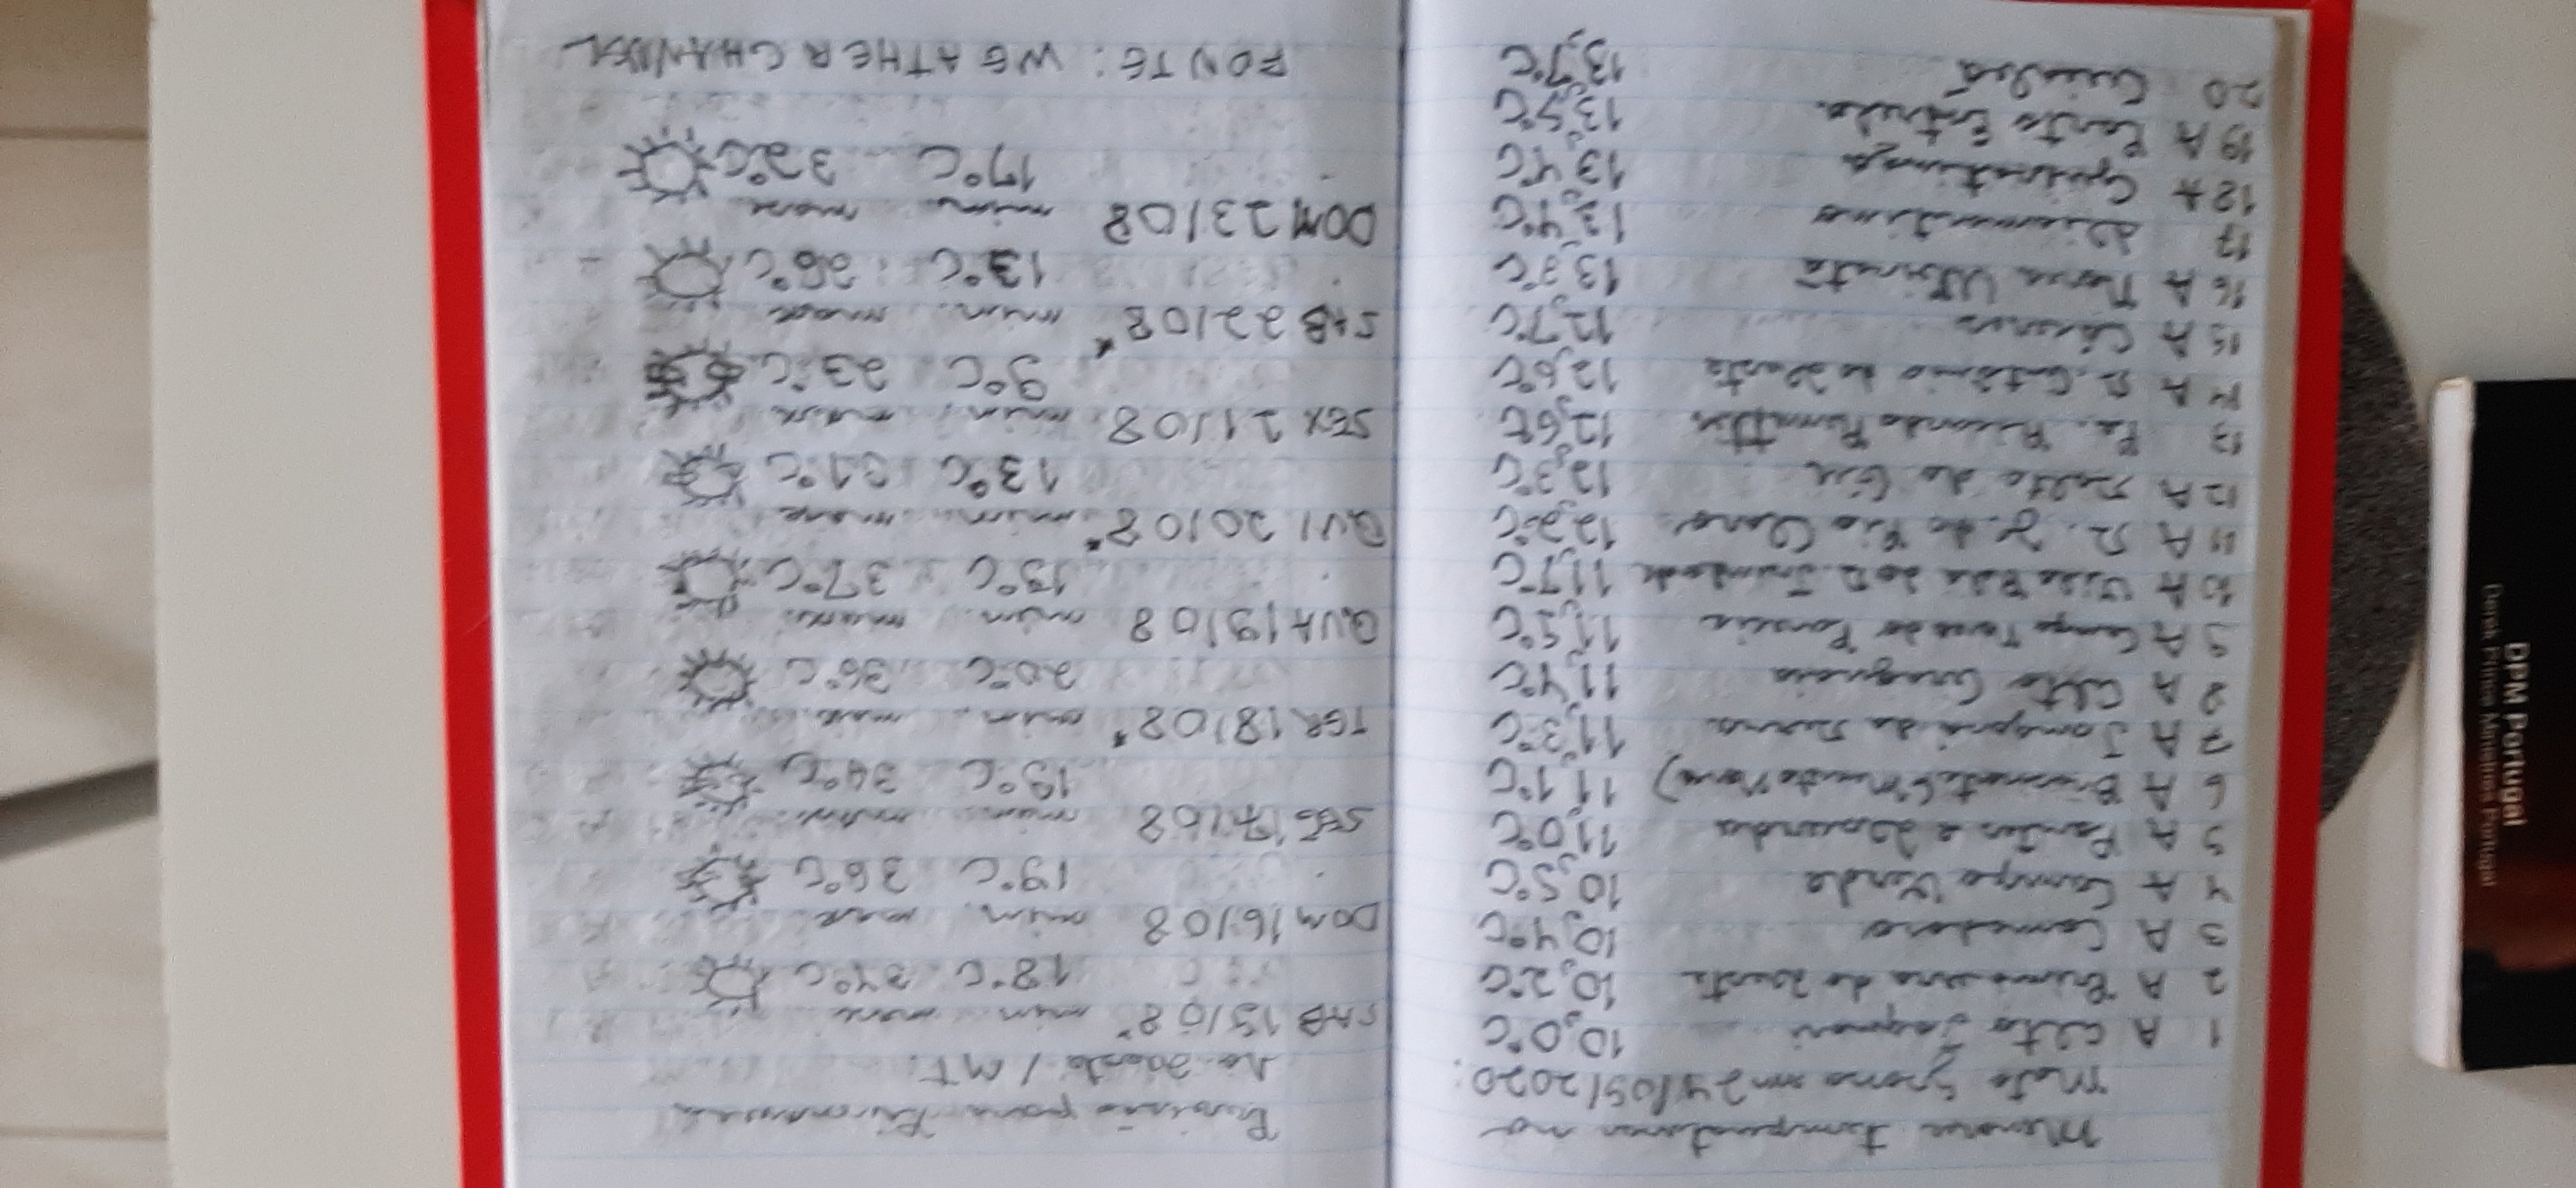 Menores temperaturas no
Mato Grosso em 24/05/2020:
1 A Alto Taquari 10,0°C
2 A Primavera do Leste 10,2°C
3 A Comodoro 10,4°C
4 A Campo Verde 10,5°C
5 A Pontes e Lacerda 11,0°C
6 A Brasnorte ( Mundo Novo) 11,1°C
7 A Tangará da Serra 11,3°C
8 A Alto Araguaia 11,4°C
9 A Campo Novo do Parecis 11,5°C
10 A Vila Bela da S. Trindade 11,7°C
11 A S. J. do Rio Claro 12,2°C
12 A Salto do Céu 12,3°C
13 12,6°C
14 A S. Antônio do Leste 12,6°C
15 A Cáceres 12,7°C
16 A Nova Ubiratã 13,3°C
17 Diamantino 13,4°C
18 A Guiratinga 13,4°C
19 A Porto Estrela 13,5°C
20 Cuiabá 13,7°C
Previsão para Primavera
do Leste / MT:
SAB 15/08* min. max
18°C 34°C
DOM 16/08 min. max
19°C 36°C
SEG 17/08 min. max.
19°C 34°C
TER 18/08* min. max
20°C 36°C
QUA 19/08 min. max.
19°C 37°C
QUI 20/08* min. max
13°C 31°C
SEX 21/08 min. max
9°C 23°C
SAB 22/08* min. max
13°C 26°C
DOM 23/08 min. max
17°C 32°C
FONTE: WEATHER CHANNEL
DPM Portugal
Dansk PMI